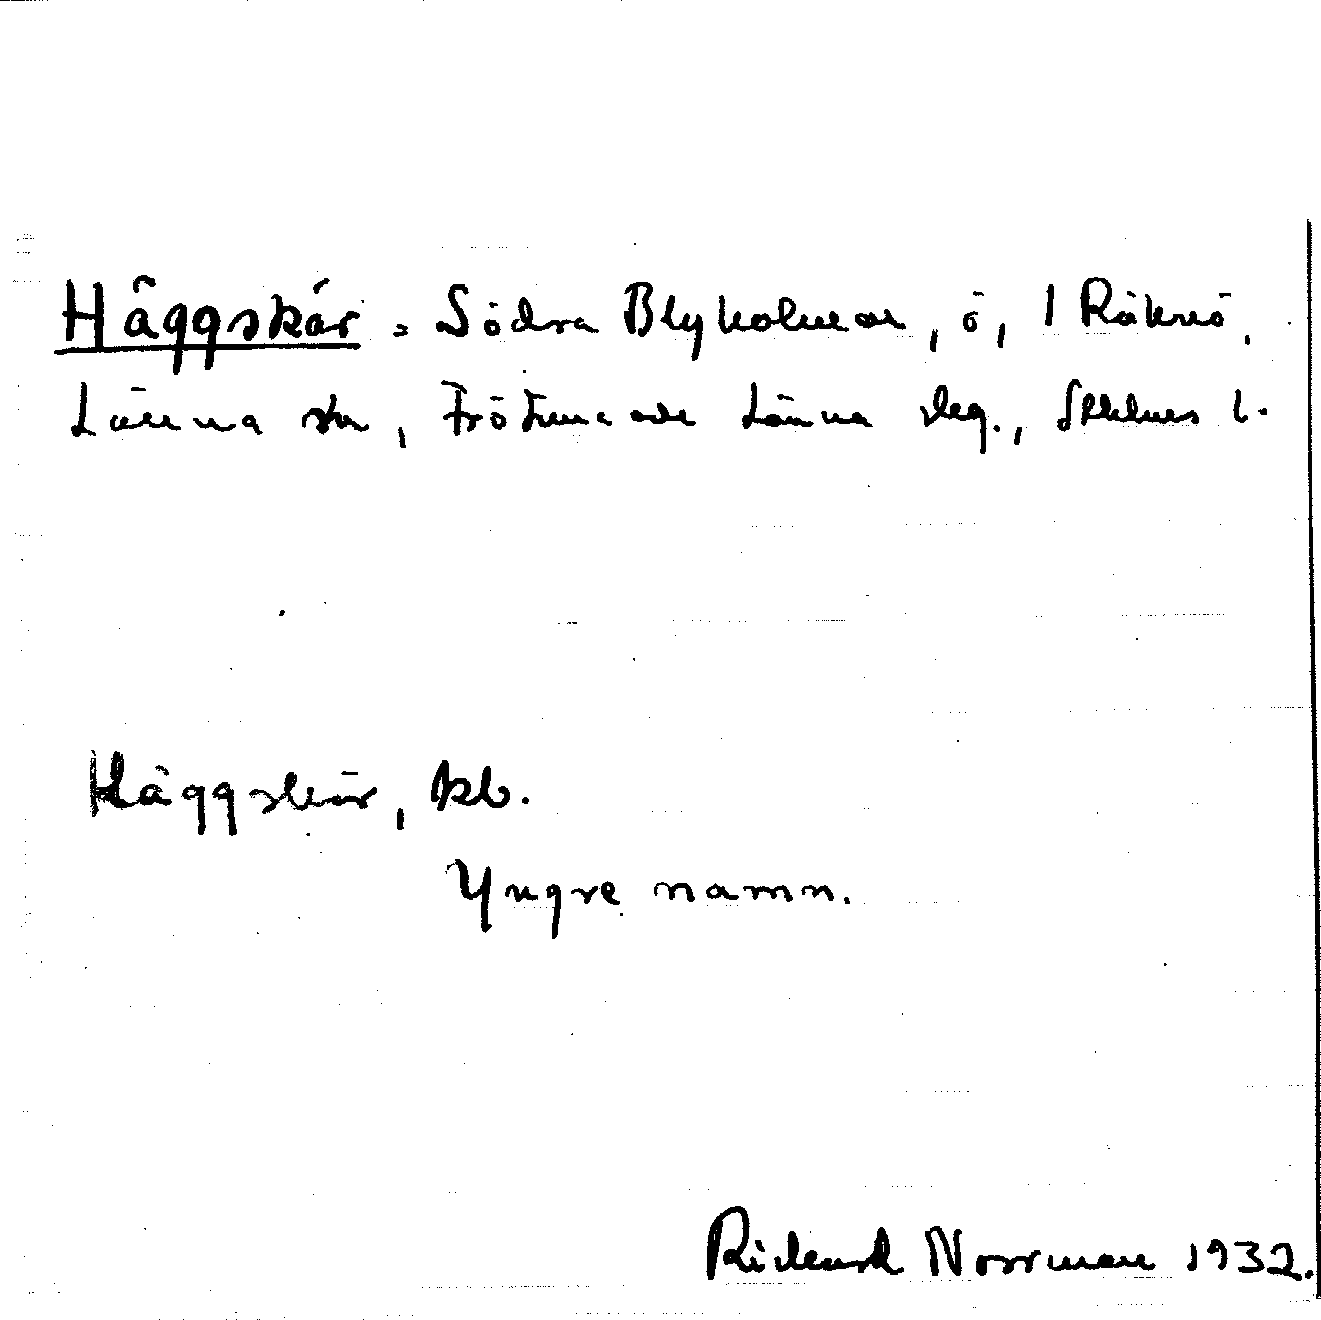 Häggskär = Södra Blykolmen, ö, 1 Räknö,
Länna sn, Frötuna och Länna sklg., Sthlms l.
Häggskär, kb.
Yngre namn.
Rickard Norrman 1932.